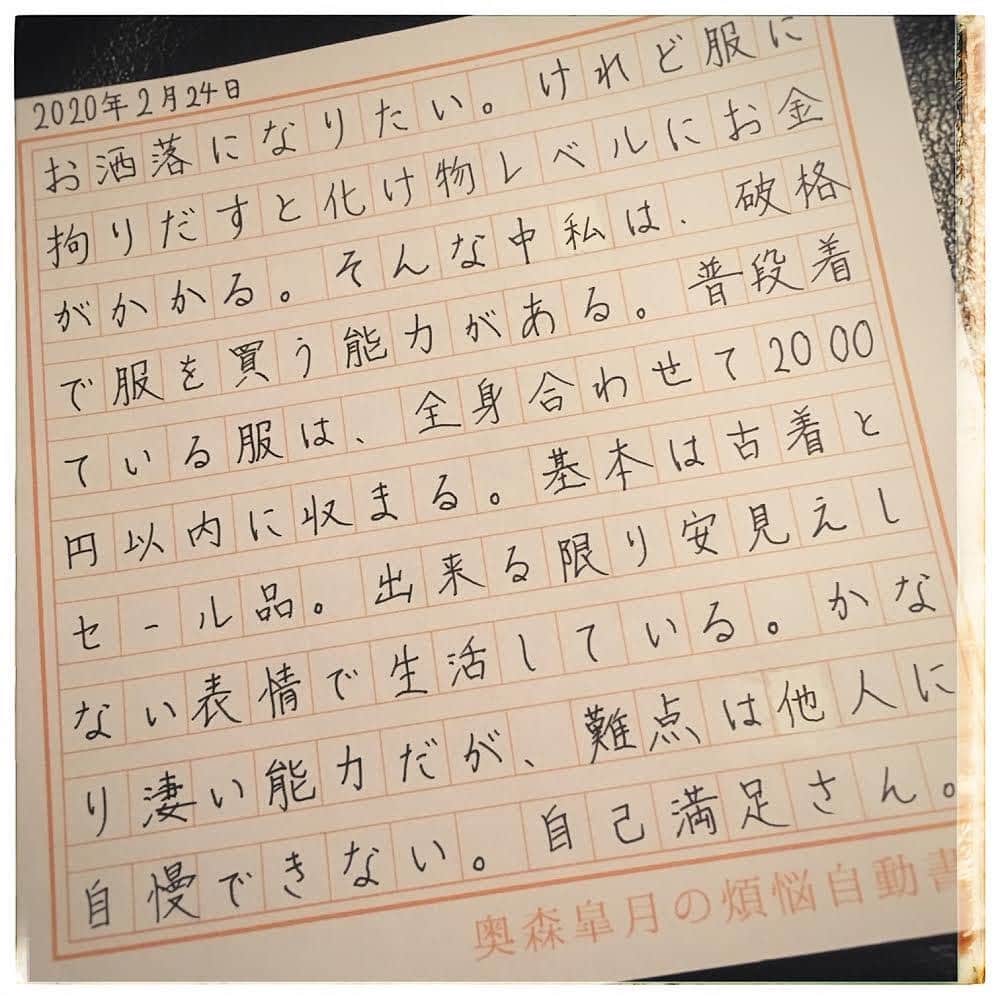 2020年2月24日
お洒落になりたい。けれど服に
拘りだすと化け物レベルにお金
がかかる。そんな中私は、破格
で服を買う能力がある。普段着
ている服は、全身合わせて2000
円以内に収まる。基本は古着と
セール品。出来る限り安見えし
ない表情で生活している。かな
り凄い能力だが、難点は他人に
自慢できない。自己満足さん。
奥森皐月の煩悩自動書